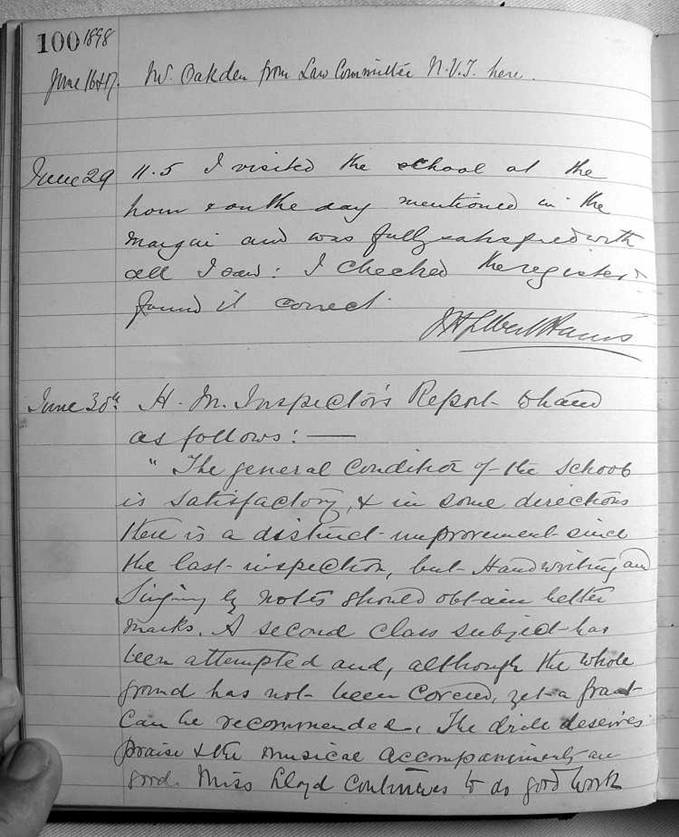 100 1898
June 16 & 17. Mr. Oakden from Law Committee N.U.T. here.
June 29 11.5 I visited the school at the
hour & on the day mentioned in the
margin and was fully satisfied with
all I saw: I checked the register &
found it correct.
June 30th H. M. Inspector's Report to hand
as follows: —
"The general condition of the school
is satisfactory, & in some directions
there is a distinct improvement since
the last inspection, but Handwriting and
Singing by notes should obtain better
marks. A second class subject has
been attempted and, although the whole
ground has not been covered, yet a grant
can be recommended. The drill deserves
praise & the musical accompaniments are
good. Miss Lloyd continues to do good work